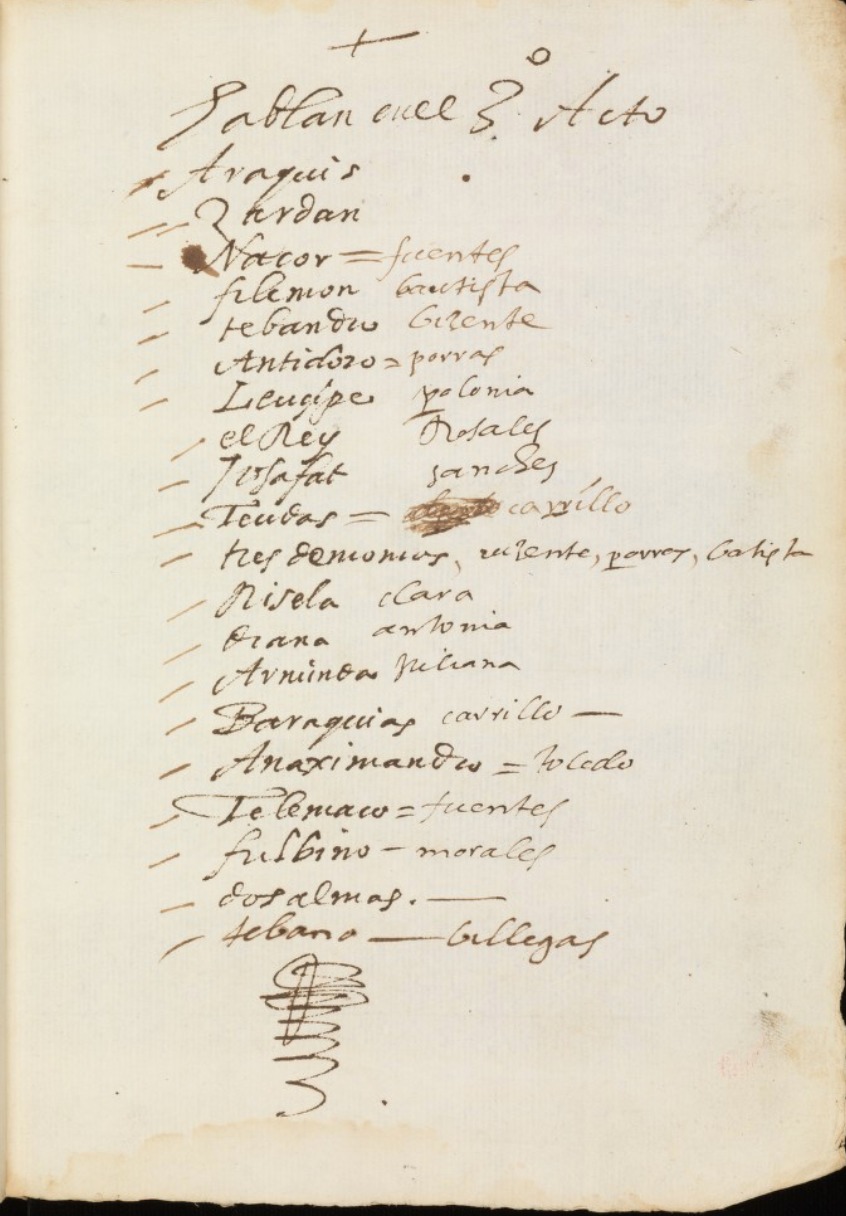 Hablan en el 3º Acto
Araquis
Zardan
Nacor = fuentes
filemon bautista
tebandro bizente
Antidoro = porras
Leucipe polonia
el Rey Rosales
Josafat sanches
Teudas = carrillo
tres demonios, vizente, porras, batista
Risela clara
diana antonia
Arminda
Baraquias carrillo —
Anaximandro = toledo
Telemaco = fuentes
fulbino – morales
dos almas. —
tebano — billegas